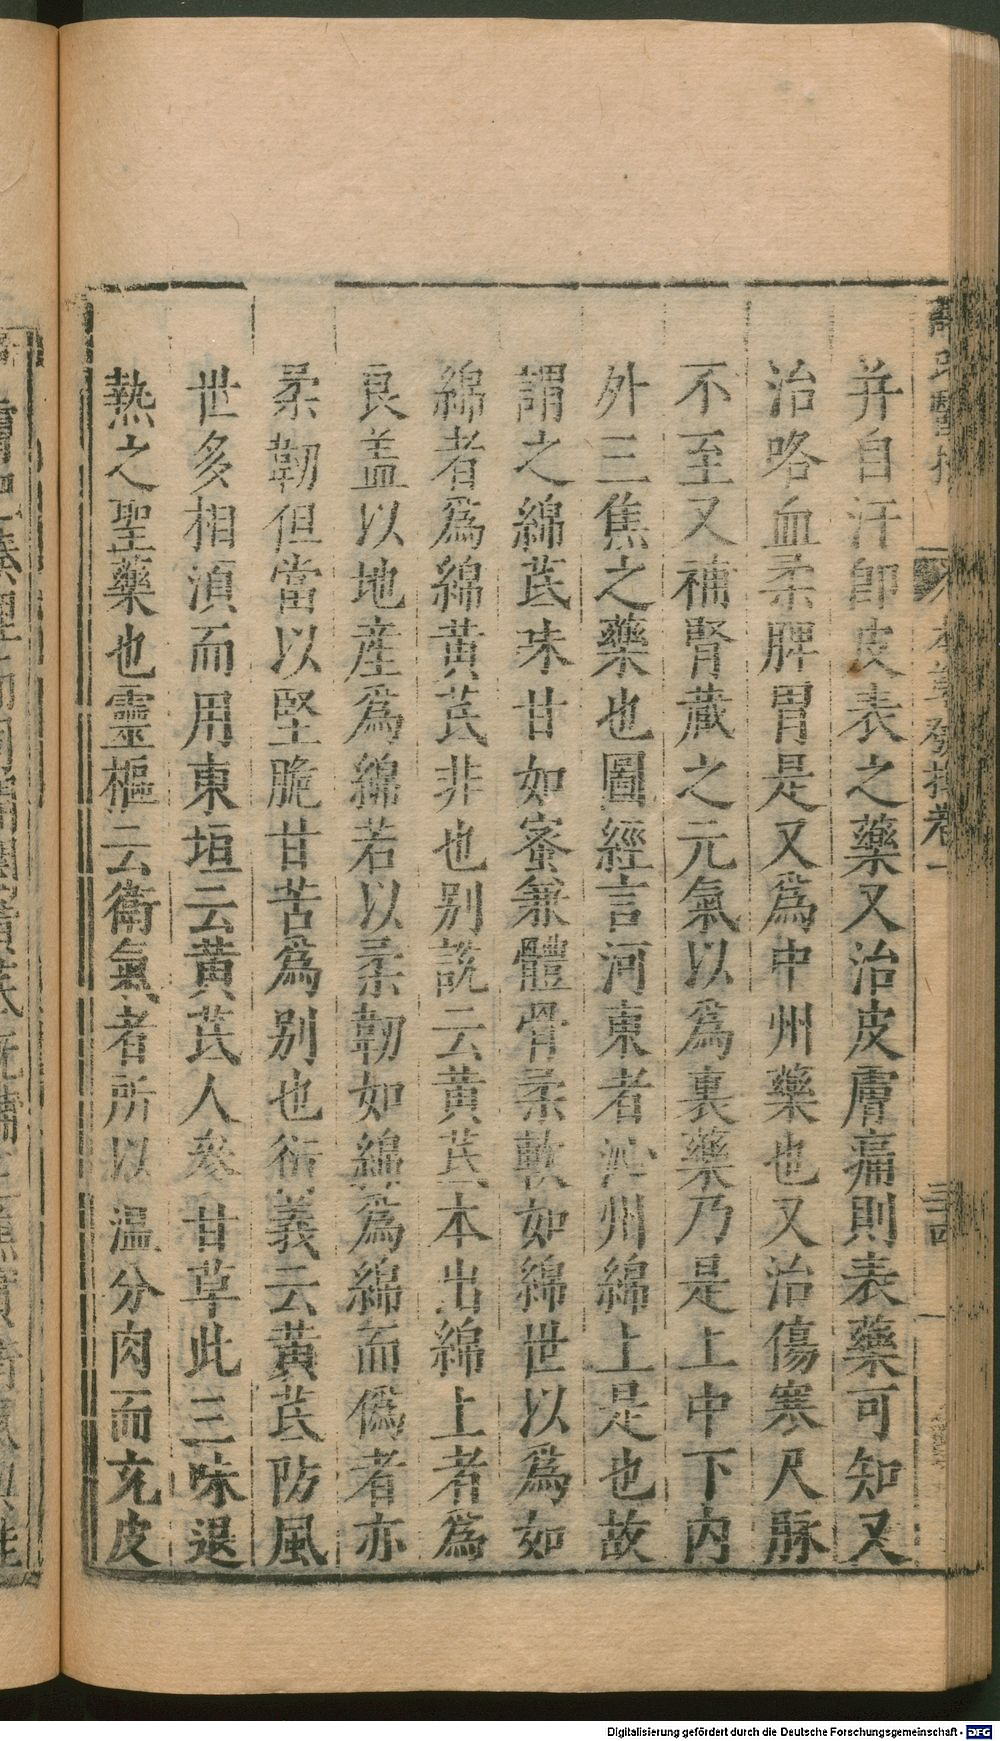 并自汗卽皮表之藥又治皮膚痛則表藥可知又
治咯血柔脾胃是又爲中州藥也又治傷寒尺脉
不至又補腎藏之元氣以爲裏藥乃是上中下内
外三焦之藥也圖經言河東者沁州綿上是也故
謂之綿芪味甘如蜜兼體骨柔軟如綿世以爲如
綿者爲綿黃芪非也别説云黃芪本出綿上者爲
良盖以地產爲綿若以柔韌如綿爲綿而僞者亦
柔韌但當以堅脆甘苦爲别也衍義云黃芪防風
世多相湏而用東垣云黃芪人參甘草此三味退
熱之聖藥也靈樞云衛氣者所以温分肉而充皮
本草發揮卷一
Digitalisierung gefördert durch die Deutsche Forschungsgemeinschaft - DFG